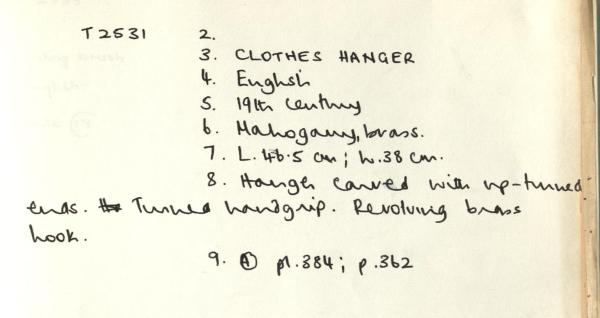 T2531 2.
3. CLOTHES HANGER
4. English
5. 19th Century
6. Mahogany, brass.
7. L. 46.5 cm; h. 38 cm.
8. Hanger carved with up-turned
ends. Turned handgrip. Revolving brass
hook.
9. A pl. 384; p. 362